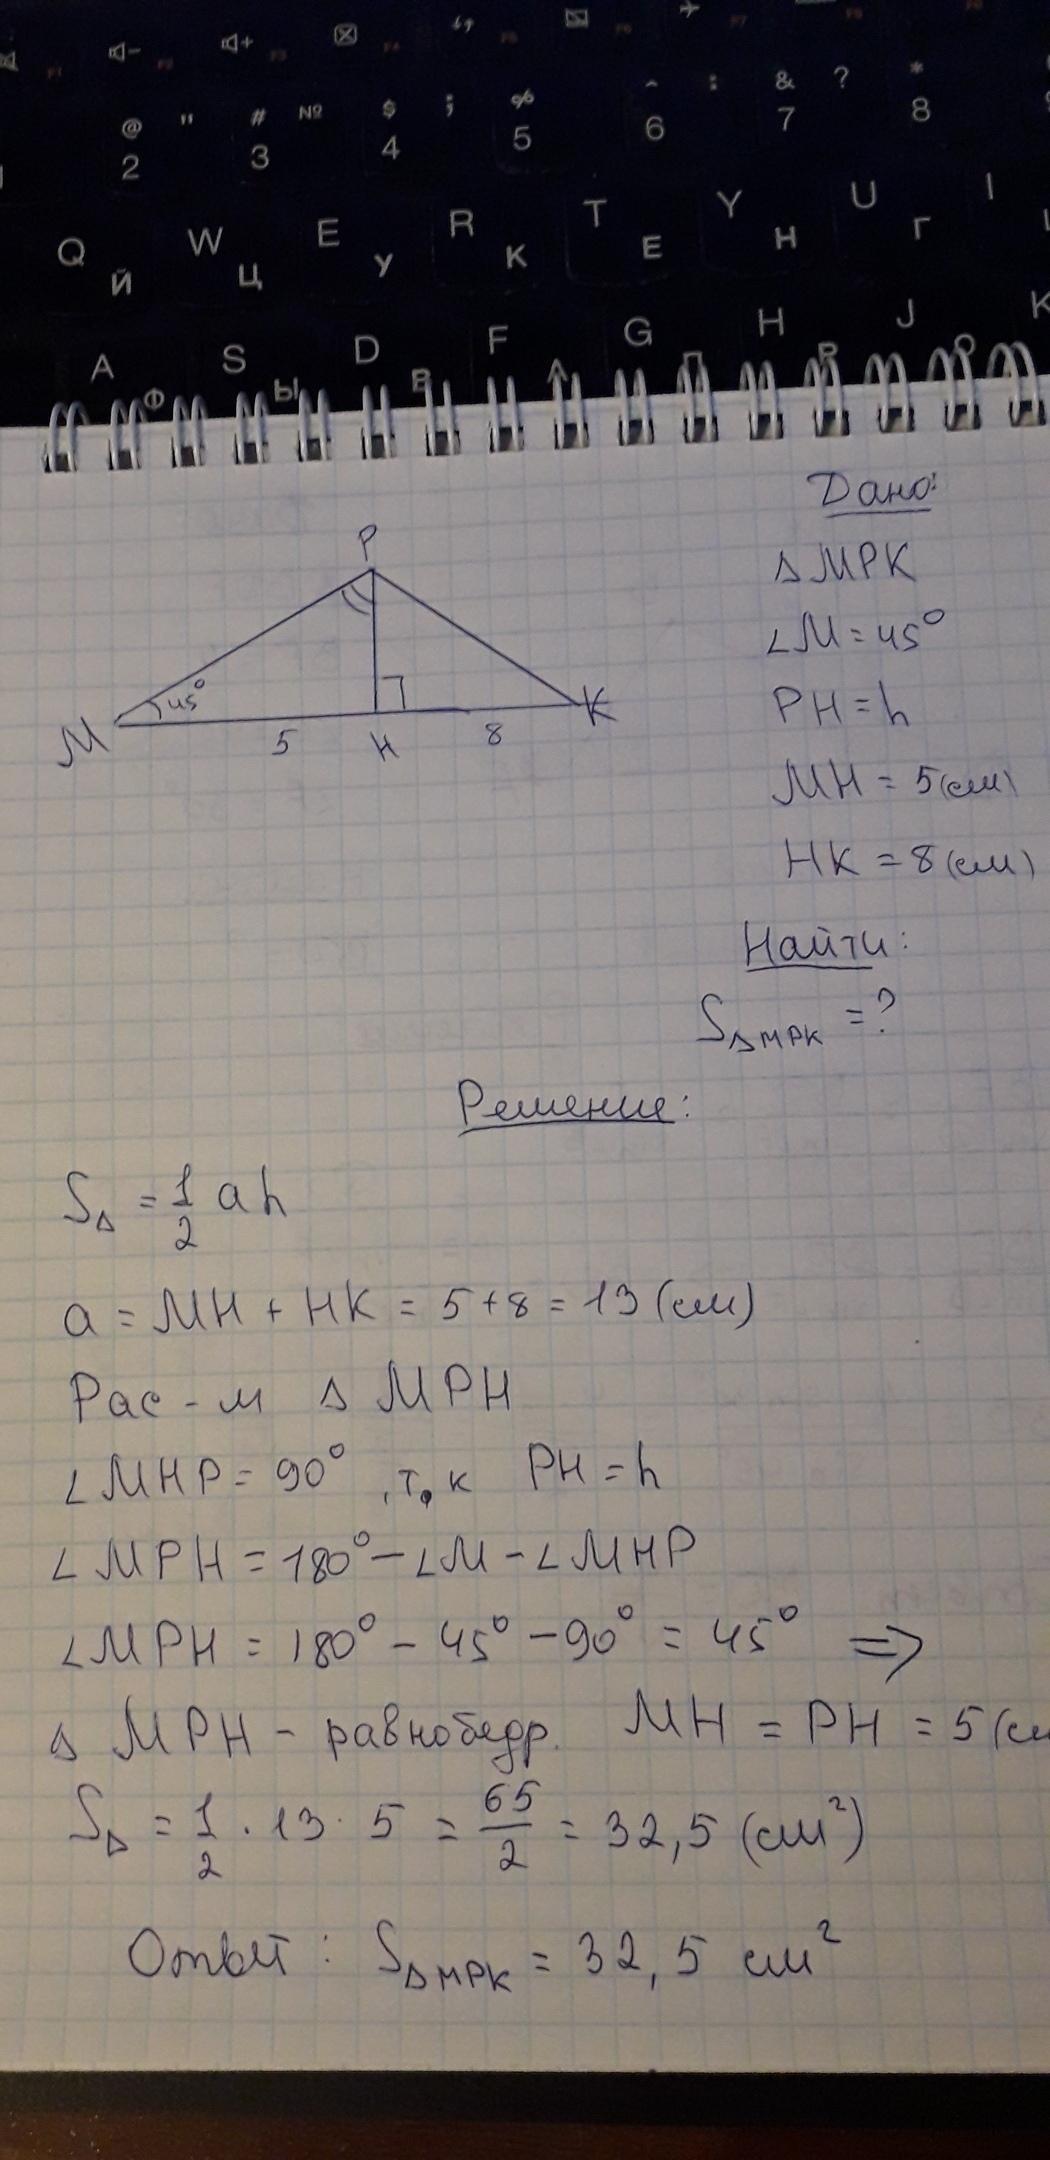 F1 F2 F3 F4 F5 F6 F7 F8
@ 2 " # 3 № $ 4 ; % 5 ^ 6 : & 7 ? * 8
Q Й W Ц E У R К T Е Y Н U Г I
A Ф S Ы D В F А G П H Р J О K
Дано:
P
△ MPK
∠M = 45°
45°
PH = h
M 5 H 8 K
MH = 5 (см)
HK = 8 (см)
Найти:
S△MPK = ?
Решение:
S△ = 1/2 a h
a = MH + HK = 5 + 8 = 13 (см)
Рас - м △ MPH
∠MHP = 90° , т.к PH = h
∠MPH = 180° - ∠M - ∠MHP
∠MPH = 180° - 45° - 90° = 45° =>
△ MPH - равнобедр. MH = PH = 5 (см
S△ = 1/2 · 13 · 5 = 65/2 = 32,5 (см²)
Ответ : S△MPK = 32,5 см²